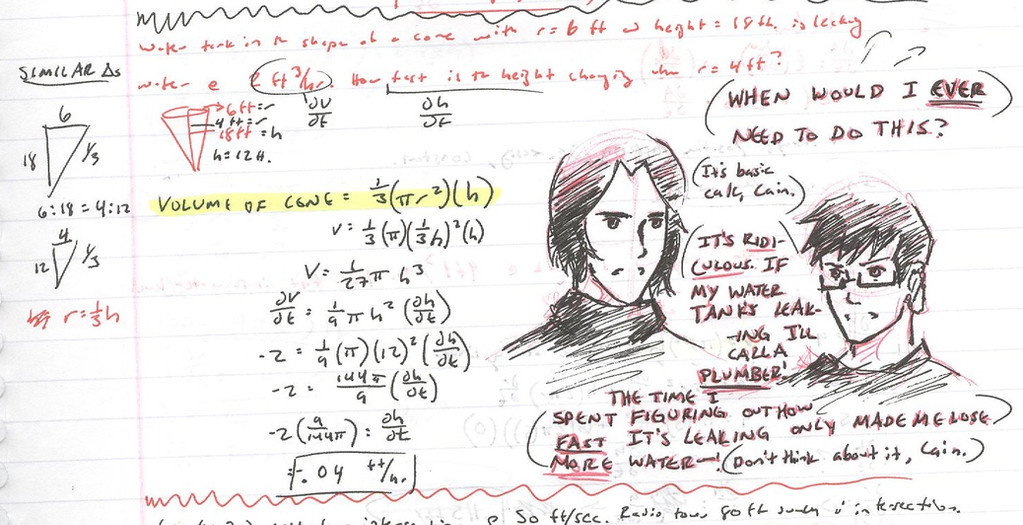 Water tank in the shape of a cone with r = 6 ft and height = 18 ft. is leaking
water @ 2 ft³/hr. How fast is the height changing when r = 4 ft?
SIMILAR Δs
6
18
1/3
6:18 = 4:12
4
12
1/3
r = 1/3 h
6 ft = r
4 ft = r
18 ft = h
h = 12 ft.
∂V/∂t
∂h/∂t
VOLUME OF CONE = 1/3(πr²)(h)
V = 1/3(π)(1/3h)²(h)
V = 1/27 π h³
∂V/∂t = 1/9 π h² (∂h/∂t)
-2 = 1/9 (π)(12)² (∂h/∂t)
-2 = 144π/9 (∂h/∂t)
-2 (9/144π) = ∂h/∂t
= -.04 ft/h.
WHEN WOULD I EVER
NEED TO DO THIS?
(It's basic
calc, Cain.)
IT'S RIDI-
CULOUS. IF
MY WATER
TANK'S LEAK-
-ING I'LL
CALL A
PLUMBER!
THE TIME I
SPENT FIGURING OUT HOW
FAST IT'S LEAKING ONLY MADE ME LOSE
MORE WATER—! (Don't think about it, Cain.)
intersection @ 50 ft/sec. Radio tower 80 ft intersection.